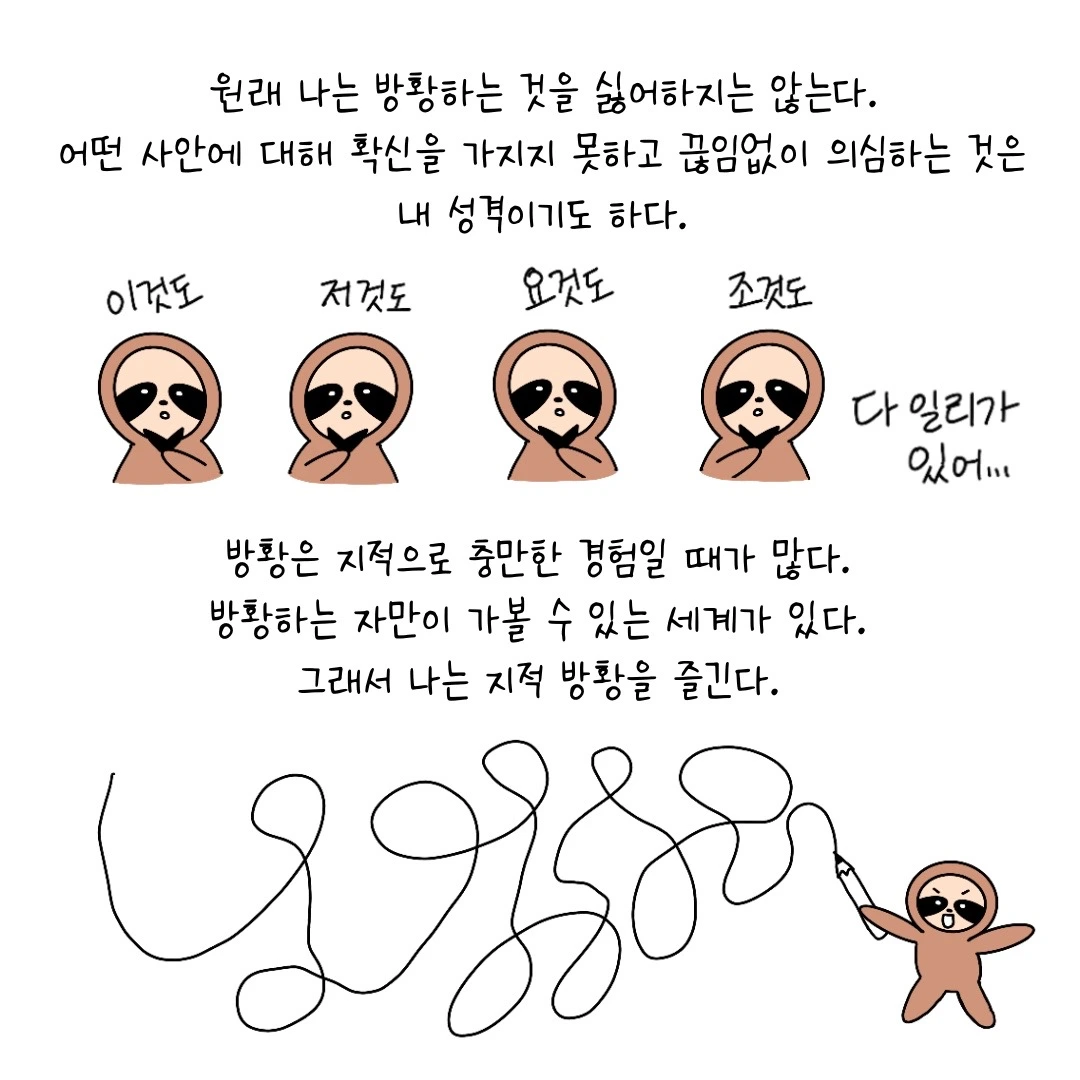 원래 나는 방황하는 것을 싫어하지는 않는다.
어떤 사안에 대해 확신을 가지지 못하고 끊임없이 의심하는 것은
내 성격이기도 하다.
이것도
저것도
요것도
조것도
다 일리가
있어...
방황은 지적으로 충만한 경험일 때가 많다.
방황하는 자만이 가볼 수 있는 세계가 있다.
그래서 나는 지적 방황을 즐긴다.